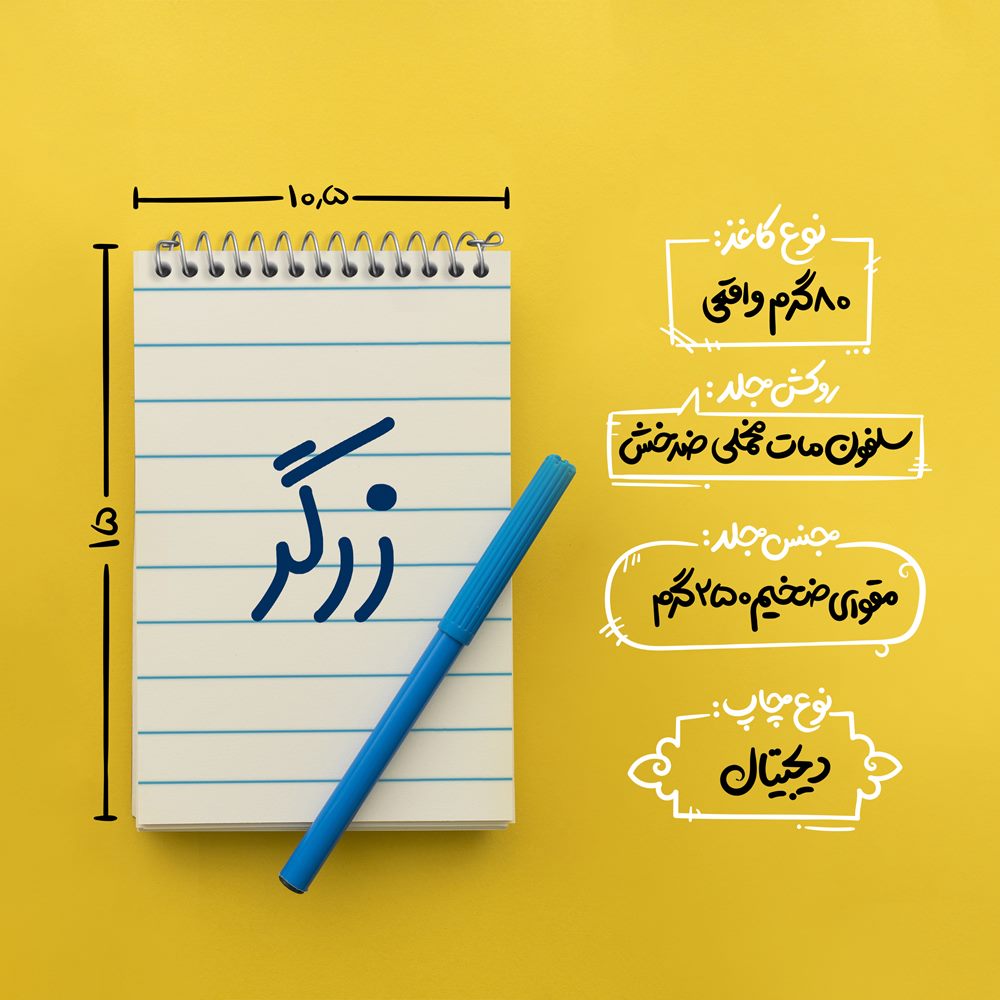 ۱۰٫۵
۱۵
زرگر
نوع کاغذ:
۸۰گرم واقعی
روکش جلد:
سلفون مات مخملی ضدخش
جنس جلد:
مقوای ضخیم ۲۵۰گرم
نوع چاپ:
دیجیتال